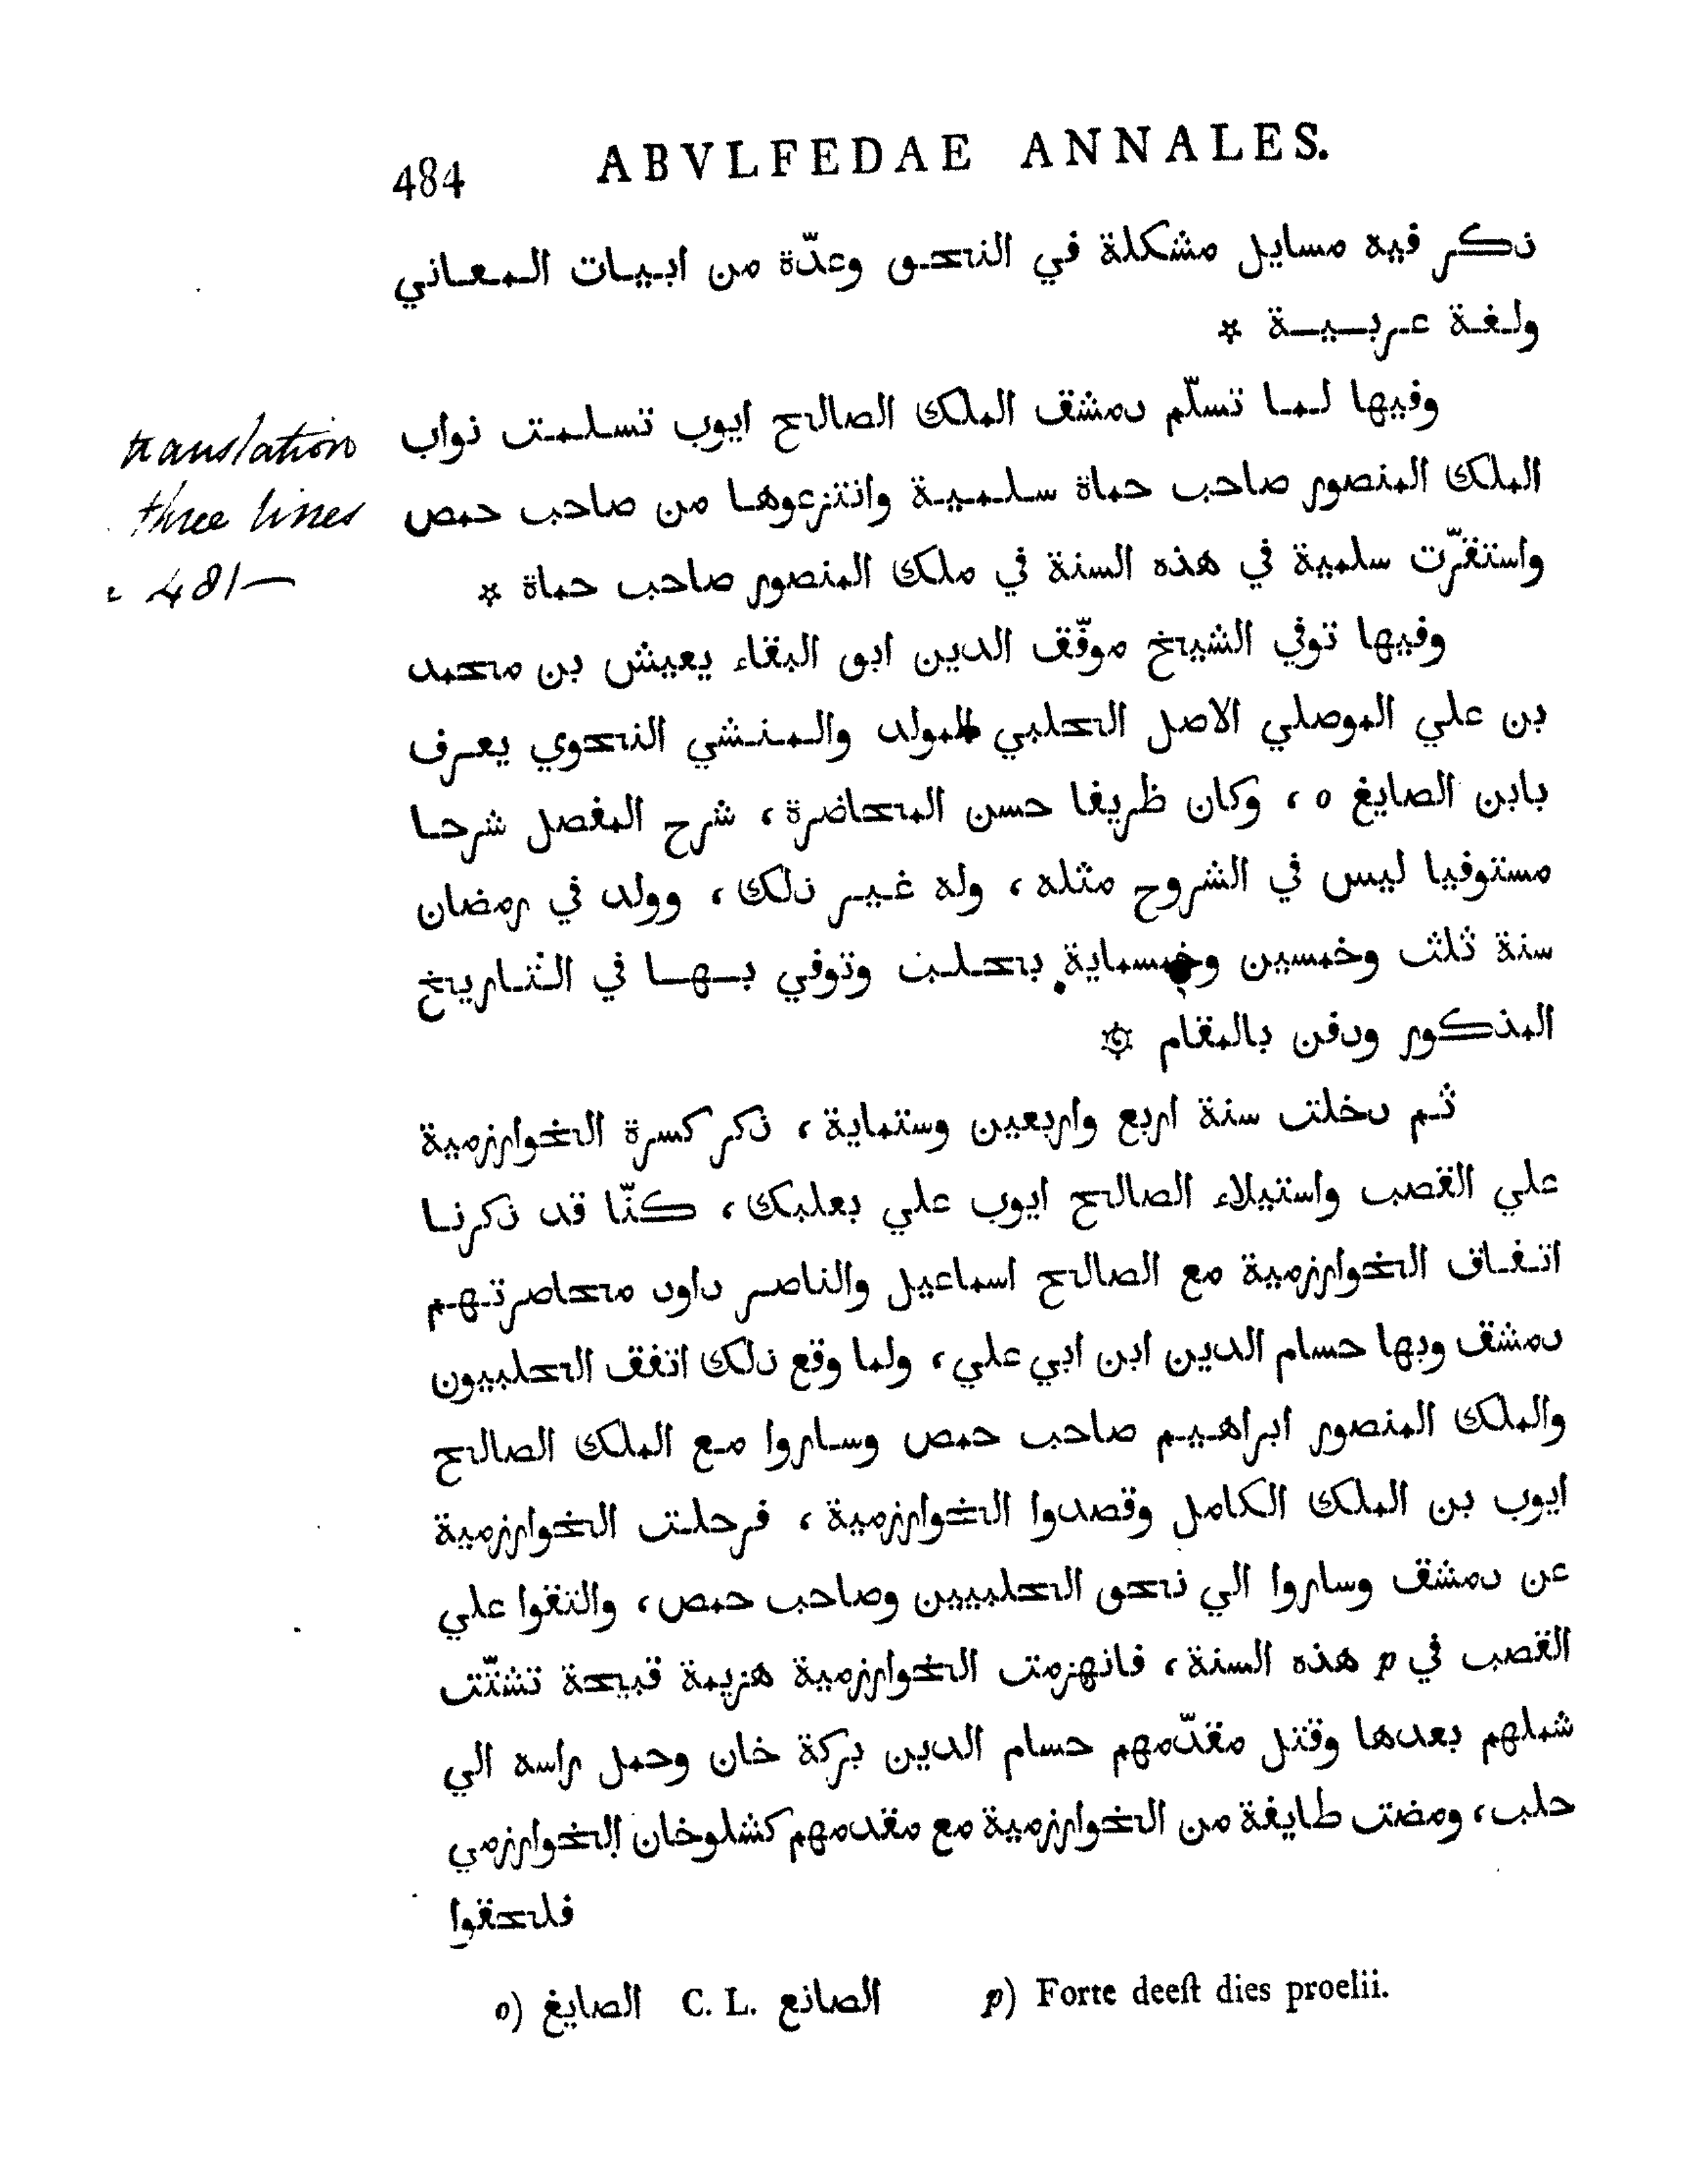 484 ABVLFEDAE ANNALES.
ذكر فيه مسايل مشكلة في النحو وعدّة من ابيات المعاني
ولغة عربية *
وفيها لما تسلّم دمشق الملك الصالح ايوب تسلمت نواب
الملك المنصور صاحب حماة سلمية وانتزعوها من صاحب حمص
واستقرّت سلمية في هذه السنة في ملك المنصور صاحب حماة *
translation
three lines
481
وفيها توفي الشيخ موفّق الدين ابو البقاء يعيش بن محمد
بن علي الموصلي الاصل الحلبي المولد والمنشي النحوي يعرف
بابن الصايغ o ، وكان ظريفا حسن المحاضرة ، شرح المفصل شرحا
مستوفيا ليس في الشروح مثله ، وله غير ذلك ، وولد في رمضان
سنة ثلث وخمسين وخمسماية بحلب وتوفي بها في التاريخ
المذكور ودفن بالمقام ۞
ثم دخلت سنة اربع واربعين وستماية ، ذكر كسرة الخوارزمية
علي القصب واستيلاء الصالح ايوب علي بعلبك ، كنّا قد ذكرنا
اتفاق الخوارزمية مع الصالح اسماعيل والناصر داود محاصرتهم
دمشق وبها حسام الدين ابن ابي علي ، ولما وقع ذلك اتفق الحلبيون
والملك المنصور ابراهيم صاحب حمص وساروا مع الملك الصالح
ايوب بن الملك الكامل وقصدوا الخوارزمية ، فرحلت الخوارزمية
عن دمشق وساروا الي نحو الحلبيين وصاحب حمص ، والتقوا علي
القصب في p هذه السنة ، فانهزمت الخوارزمية هزيمة قبيحة تشتّت
شملهم بعدها وقتل مقدّمهم حسام الدين بركة خان وحمل راسه الي
حلب ، ومضت طايفة من الخوارزمية مع مقدمهم كشلوخان الخوارزمي
فلحقوا
o) الصايغ C. L. الصانع p) Forte deeſt dies proelii.